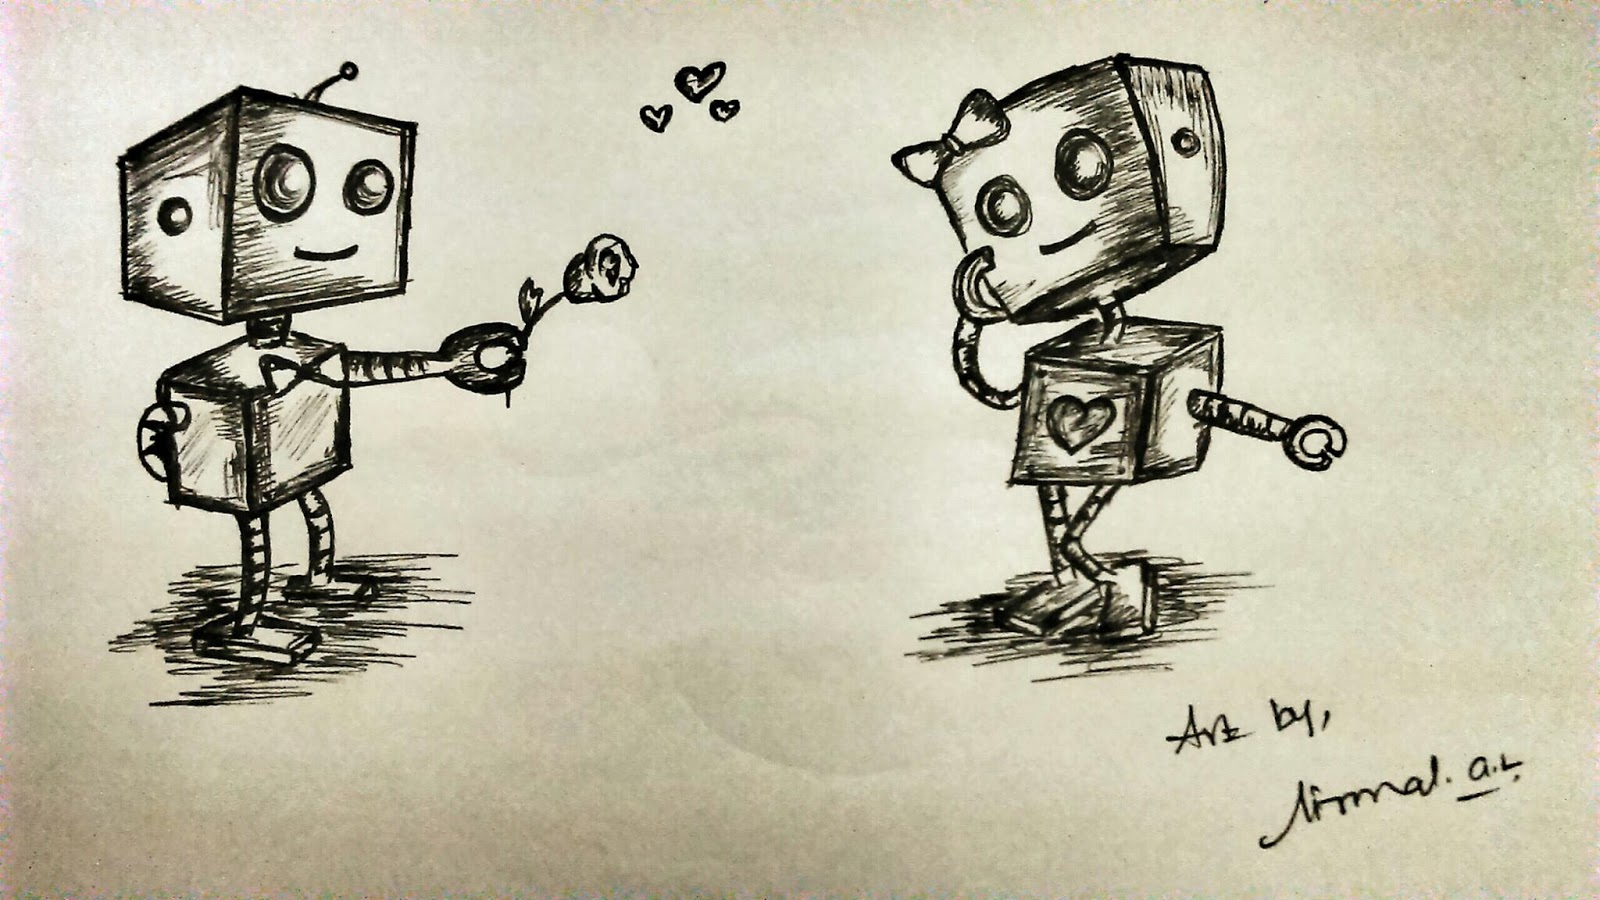 Art by,
Nirmal. a.L.